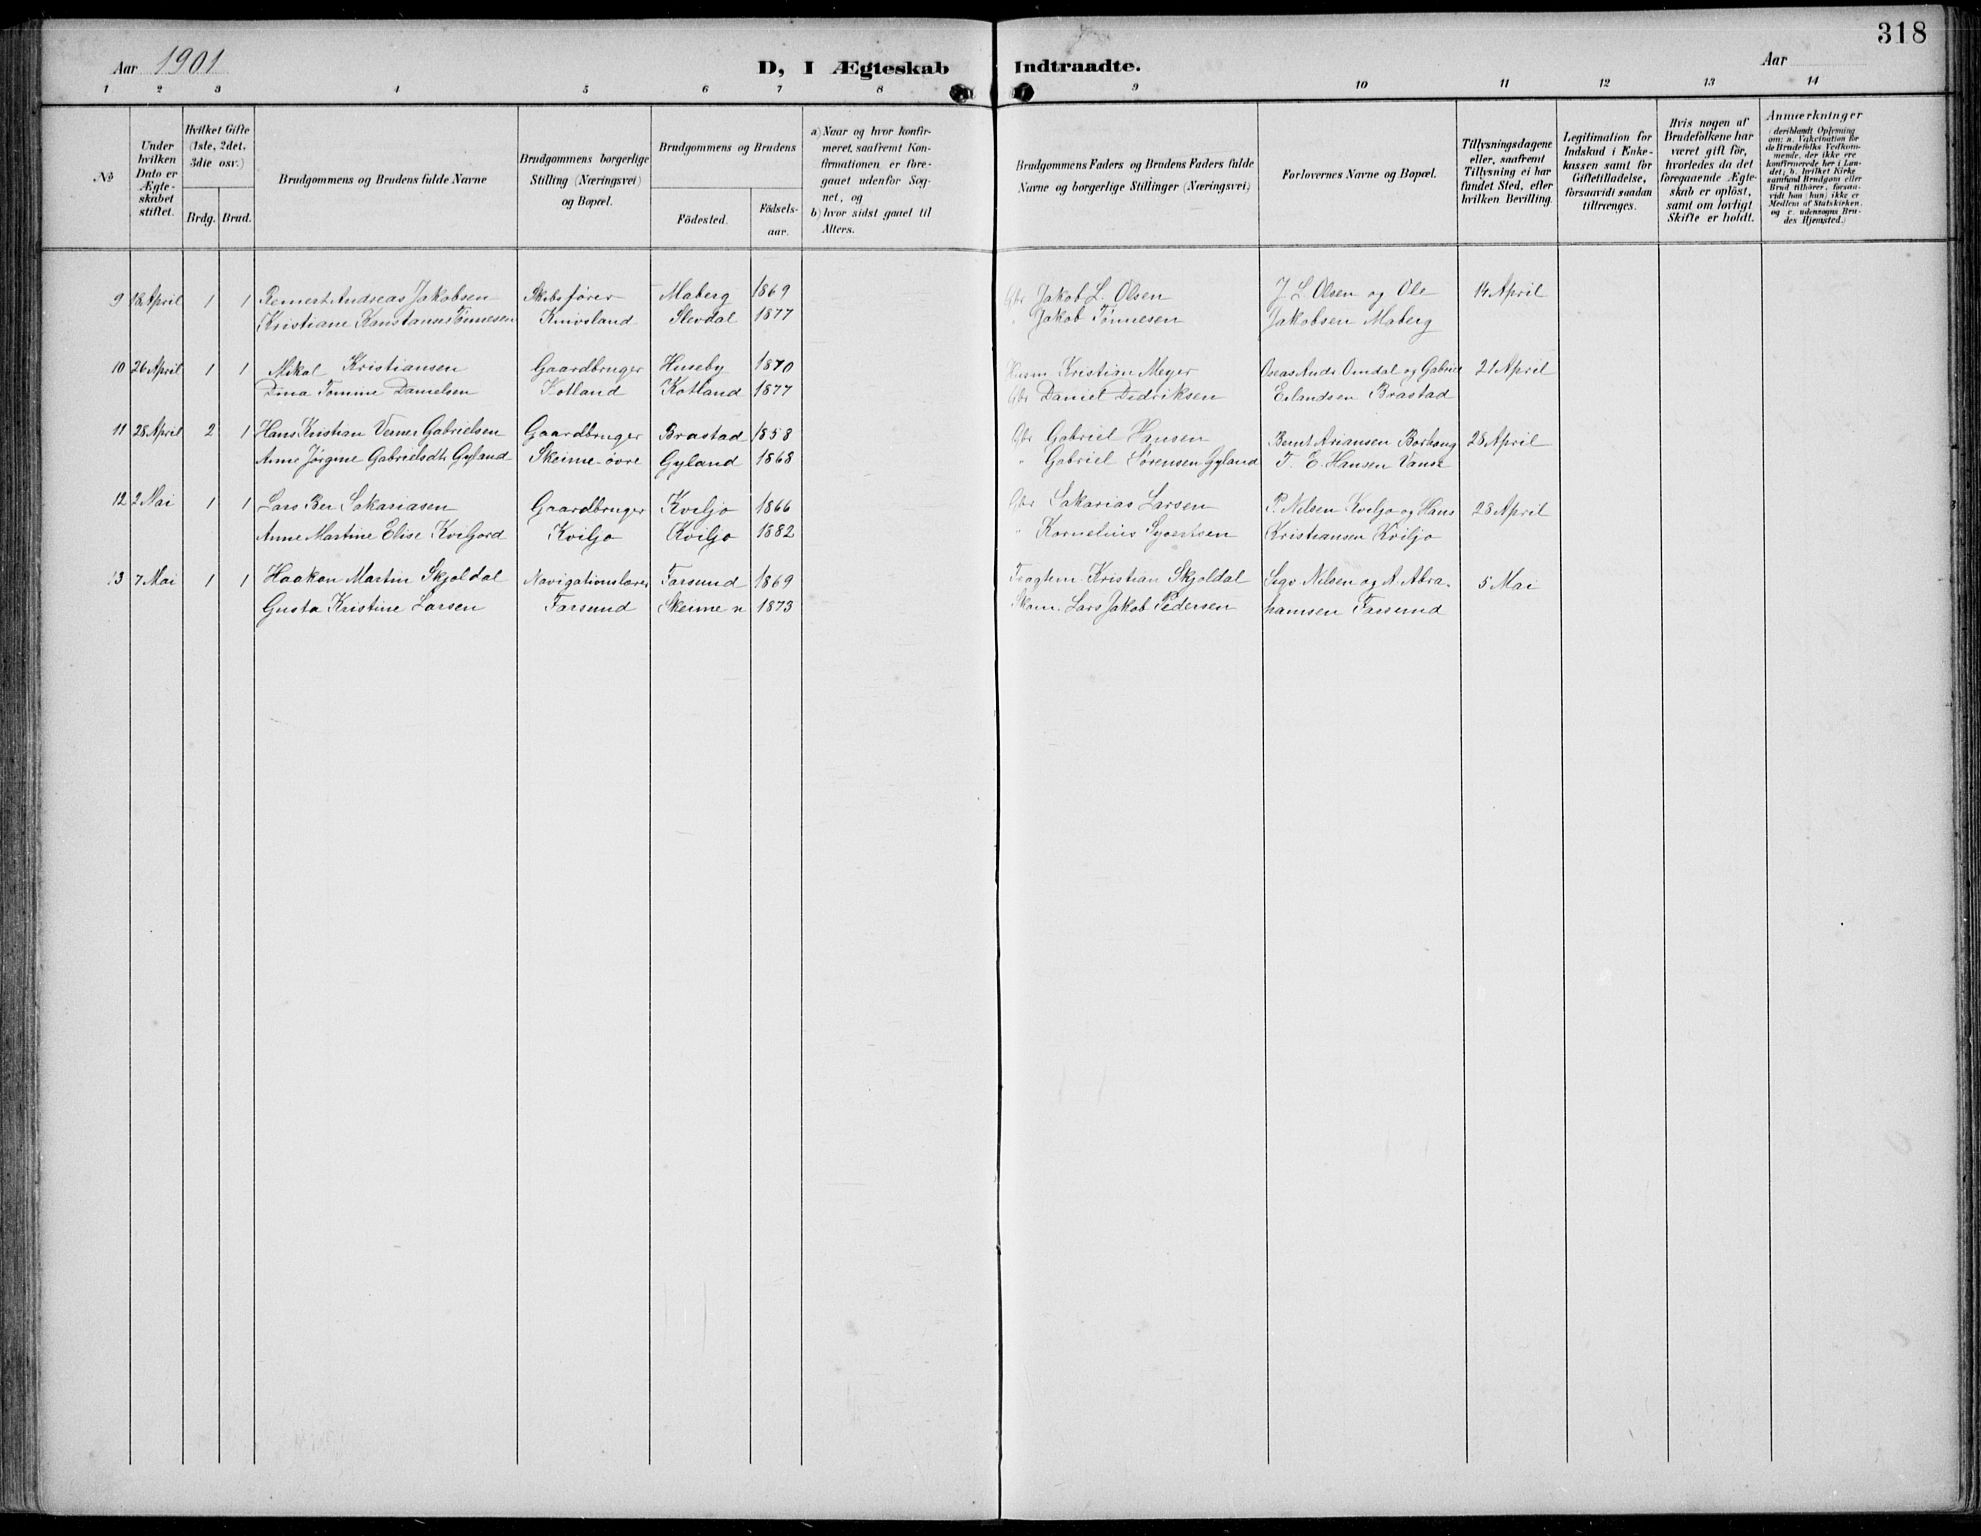 318
Aar 1901
D, I Ægteskab Indtraadte.
Aar
1 2 3 4 5 6 7 8 9 10 11 12 13 14
№
Under hvilken Dato er Ægteskabet stiftet.
Hvilket Gifte (1ste, 2det, 3die osv.)
Brdg. Brud.
Brudgommens og Brudens fulde Navne
Brudgommens borgerlige Stilling (Næringsvei) og Bopæl.
Brudgommens og Brudens
Födested.
Födsels-aar.
a) Naar og hvor konfirmeret, saafremt Konfirmationen er foregaaet udenfor Sognet, og
b) hvor sidst gaaet til Alters.
Brudgommens Faders og Brudens Faders fulde Navne og borgerlige Stillinger (Næringsvei)
Forlovernes Navne og Bopæl.
Tillysningsdagene eller, saafremt Tillysning ei har fundet Sted, efter hvilken Bevilling.
Legitimation for Indskud i Enkekassen samt for Giftetilladelse, forsaavidt saadan tiltrænges.
Hvis nogen af Brudefolkene har været gift för, hvorledes da det foregaaende Ægteskab er oplöst, samt om lovligt Skifte er holdt.
Anmerkninger (deriblandt Oplysning om: a. Vakcination for de Brudefolks Vedkommende, der ikke ere konfirmerede her i Landet; b. hvilket Kirkesamfund Brudgom eller Brud tilhörer, forsaavidt han (hun) ikke er Medlem af Statskirken, og c. udensogns Brudes Hjemsted.)
9 18 April 1 1 Remert Andreas Jakobsen Skibsfører Maberg 1869 Gbr Jakob L. Olsen J L Olsen og Ole 14 April
Kristiane Konstanse Tønnesen Knivsland Slevdal 1877 " Jakob Tønnesen Jakobsen Maberg
10 26 April 1 1 Mikal Kristiansen Gaardbruger Huseby 1870 Kristian Meyer Oseas Ands Omdal og Gabriel 21 April
Dina Tomine Danielsen Kotland Kotland 1877 Gbr Daniel Didriksen Erlandsen Brastad
11 28 April 2 1 Hans Kristian Verner Gabrielsen Gaardbruger Brastad 1858 Gbr Gabriel Hansen Bernt Ariansen Borhaug 28 April
Anne Jørgine Gabrielsdtr Gyland Skeime øvre Gyland 1868 " Gabriel Sørensen Gyland T. E. Hansen Vanse
12 2 Mai 1 1 Lars Ber Sakariasen Gaardbruger Kviljo 1866 Gbr Sakarias Larsen P. Nilsen Kviljo og Hans 28 April
Anne Martine Elise Kviljord Kviljo Kviljo 1882 " Kornelius Syvertsen Kristiansen Kviljo
13 7 Mai 1 1 Haakon Martin Skjoldal Navigationslærer Farsund 1869 Kristian Skjoldal Sigv. Nilsen og A. Abra- 5 Mai
Gusta Kristine Larsen Farsund Skeime n 1873 Skom. Lars Jakob Pedersen hamsen Farsund